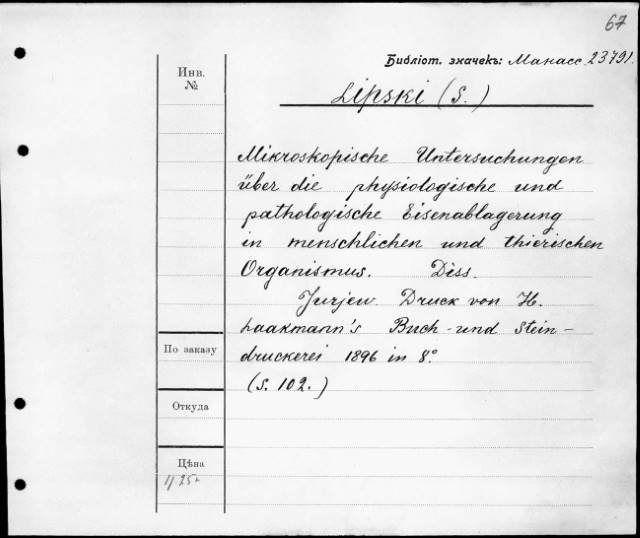 67
Библіот. значекъ: Манасс. 23791.
Инв.
№
Lipski (S.)
Mikroskopische Untersuchungen
über die physiologische und
pathologische Eisenablagerung
in menschlichen und thierischen
Organismus. Diss.
Jurjew. Druck von H.
Laakmann's Buch- und Stein-
druckerei 1896 in 8°
(S. 102.)
По заказу
Откуда
Цѣна